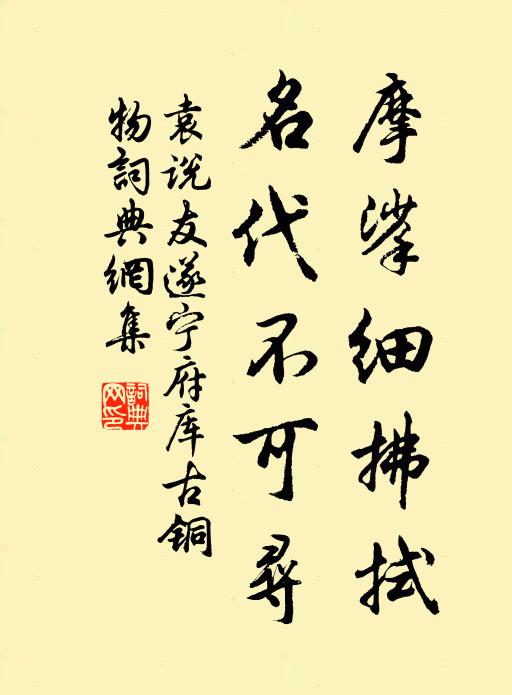 摩挲细拂拭
名代不可尋
袁说友遂宁府库古铜
物詞典網集
詞典
网印